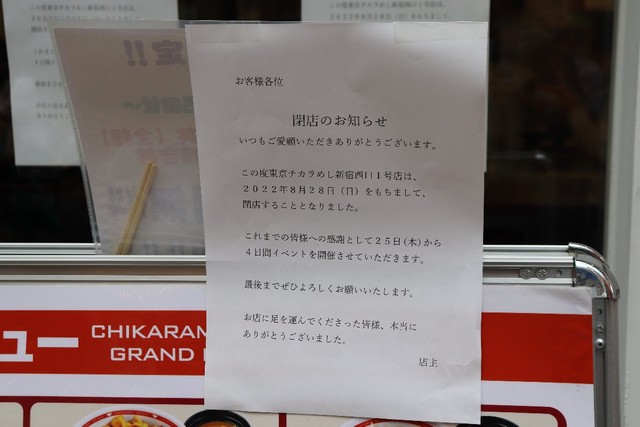 お客様各位
閉店のお知らせ
いつもご愛顧いただきありがとうございます。
この度東京チカラめし新宿西口1号店は、
2022年8月28日（日）をもちまして、
閉店することとなりました。
これまでの皆様への感謝として25日（木）から
4日間イベントを開催させていただきます。
最後までぜひよろしくお願いいたします。
お店に足を運んでくださった皆様、本当に
ありがとうございました。
店主
ュー
CHIKARAM
GRAND